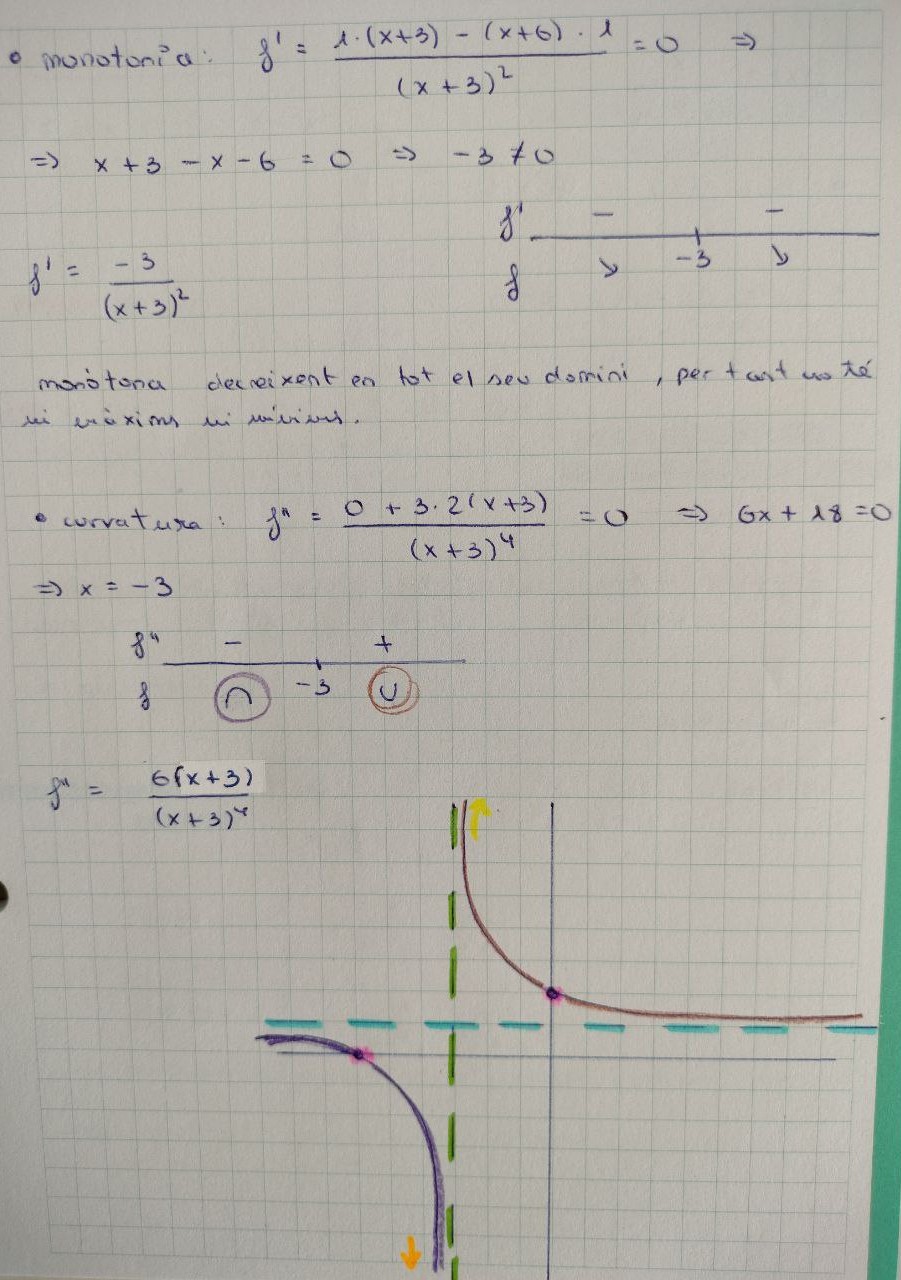 • monotonia: f' = 1·(x+3) - (x+6)·1 / (x+3)² = 0 ⇒
⇒ x+3-x-6 = 0 ⇒ -3 ≠ 0
f' - -
-3
f ↘ ↘
f' = -3 / (x+3)²
monòtona decreixent en tot el seu domini, per tant no té
ni màxims ni mínims.
• curvatura: f'' = 0 + 3·2(x+3) / (x+3)⁴ = 0 ⇒ 6x + 18 = 0
⇒ x = -3
f'' - +
f ∩ -3 ∪
f'' = 6(x+3) / (x+3)⁴